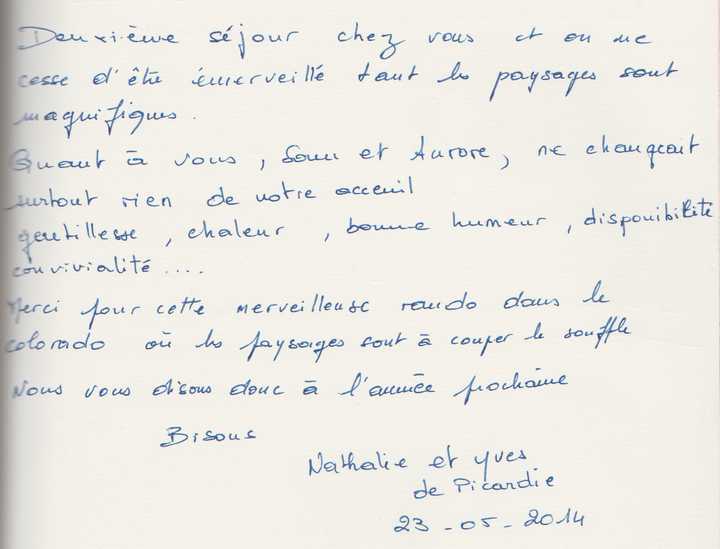 Deuxième séjour chez vous et on ne
cesse d'être émerveillé tant les paysages sont
magnifiques.
Quant à vous, Sam et Aurore, ne changeait
surtout rien de votre acceuil
gentillesse, chaleur, bonne humeur, disponibilité
convivialité ....
Merci pour cette merveilleuse rando dans le
colorado où les paysages sont à couper le souffle
Nous vous disons donc à l'année prochaine
Bisous
Nathalie et Yves
de Picardie
23-05-2014